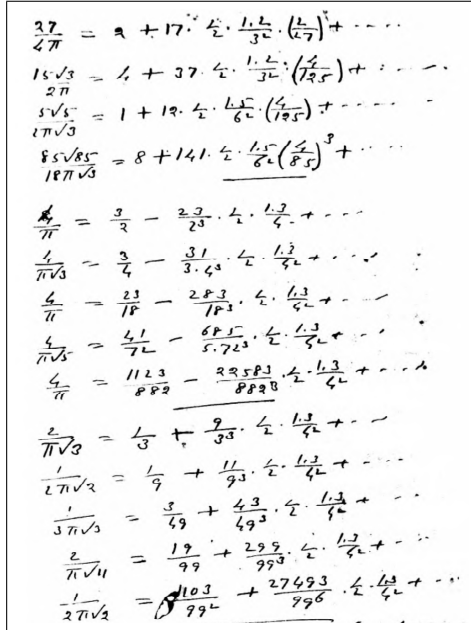 27/4π = 2 + 17· 1/2 · 1.2/3² · (2/27) + ····
15√3/2π = 4 + 37· 1/2 · 1.2/3² · (4/125) + ····
5√5/2π√3 = 1 + 12· 1/2 · 1.5/6² · (4/125) + ····
85√85/18π√3 = 8 + 141· 1/2 · 1.5/6² (4/85)³ + ····
4/π = 3/2 − 23/2³ · 1/2 · 1.3/4 + ···
4/π√3 = 3/4 − 31/3.4³ · 1/2 · 1.3/4² + ···
4/π = 23/18 − 283/18³ · 1/2 · 1.3/4² + ···
4/π√5 = 41/72 − 685/5.72³ · 1/2 · 1.3/4² + ···
4/π = 1123/882 − 22583/882³ · 1/2 · 1.3/4² + ···
2/π√3 = 1/3 + 9/3³ · 1/2 · 1.3/4² + ···
1/2π√2 = 1/9 + 11/9³ · 1/2 · 1.3/4² + ···
1/3π√3 = 3/49 + 43/49³ · 1/2 · 1.3/4² + ···
2/π√11 = 19/99 + 299/99³ · 1/2 · 1.3/4² + ···
1/2π√2 = 1103/99² + 27493/99⁶ · 1/2 · 1.3/4² + ···